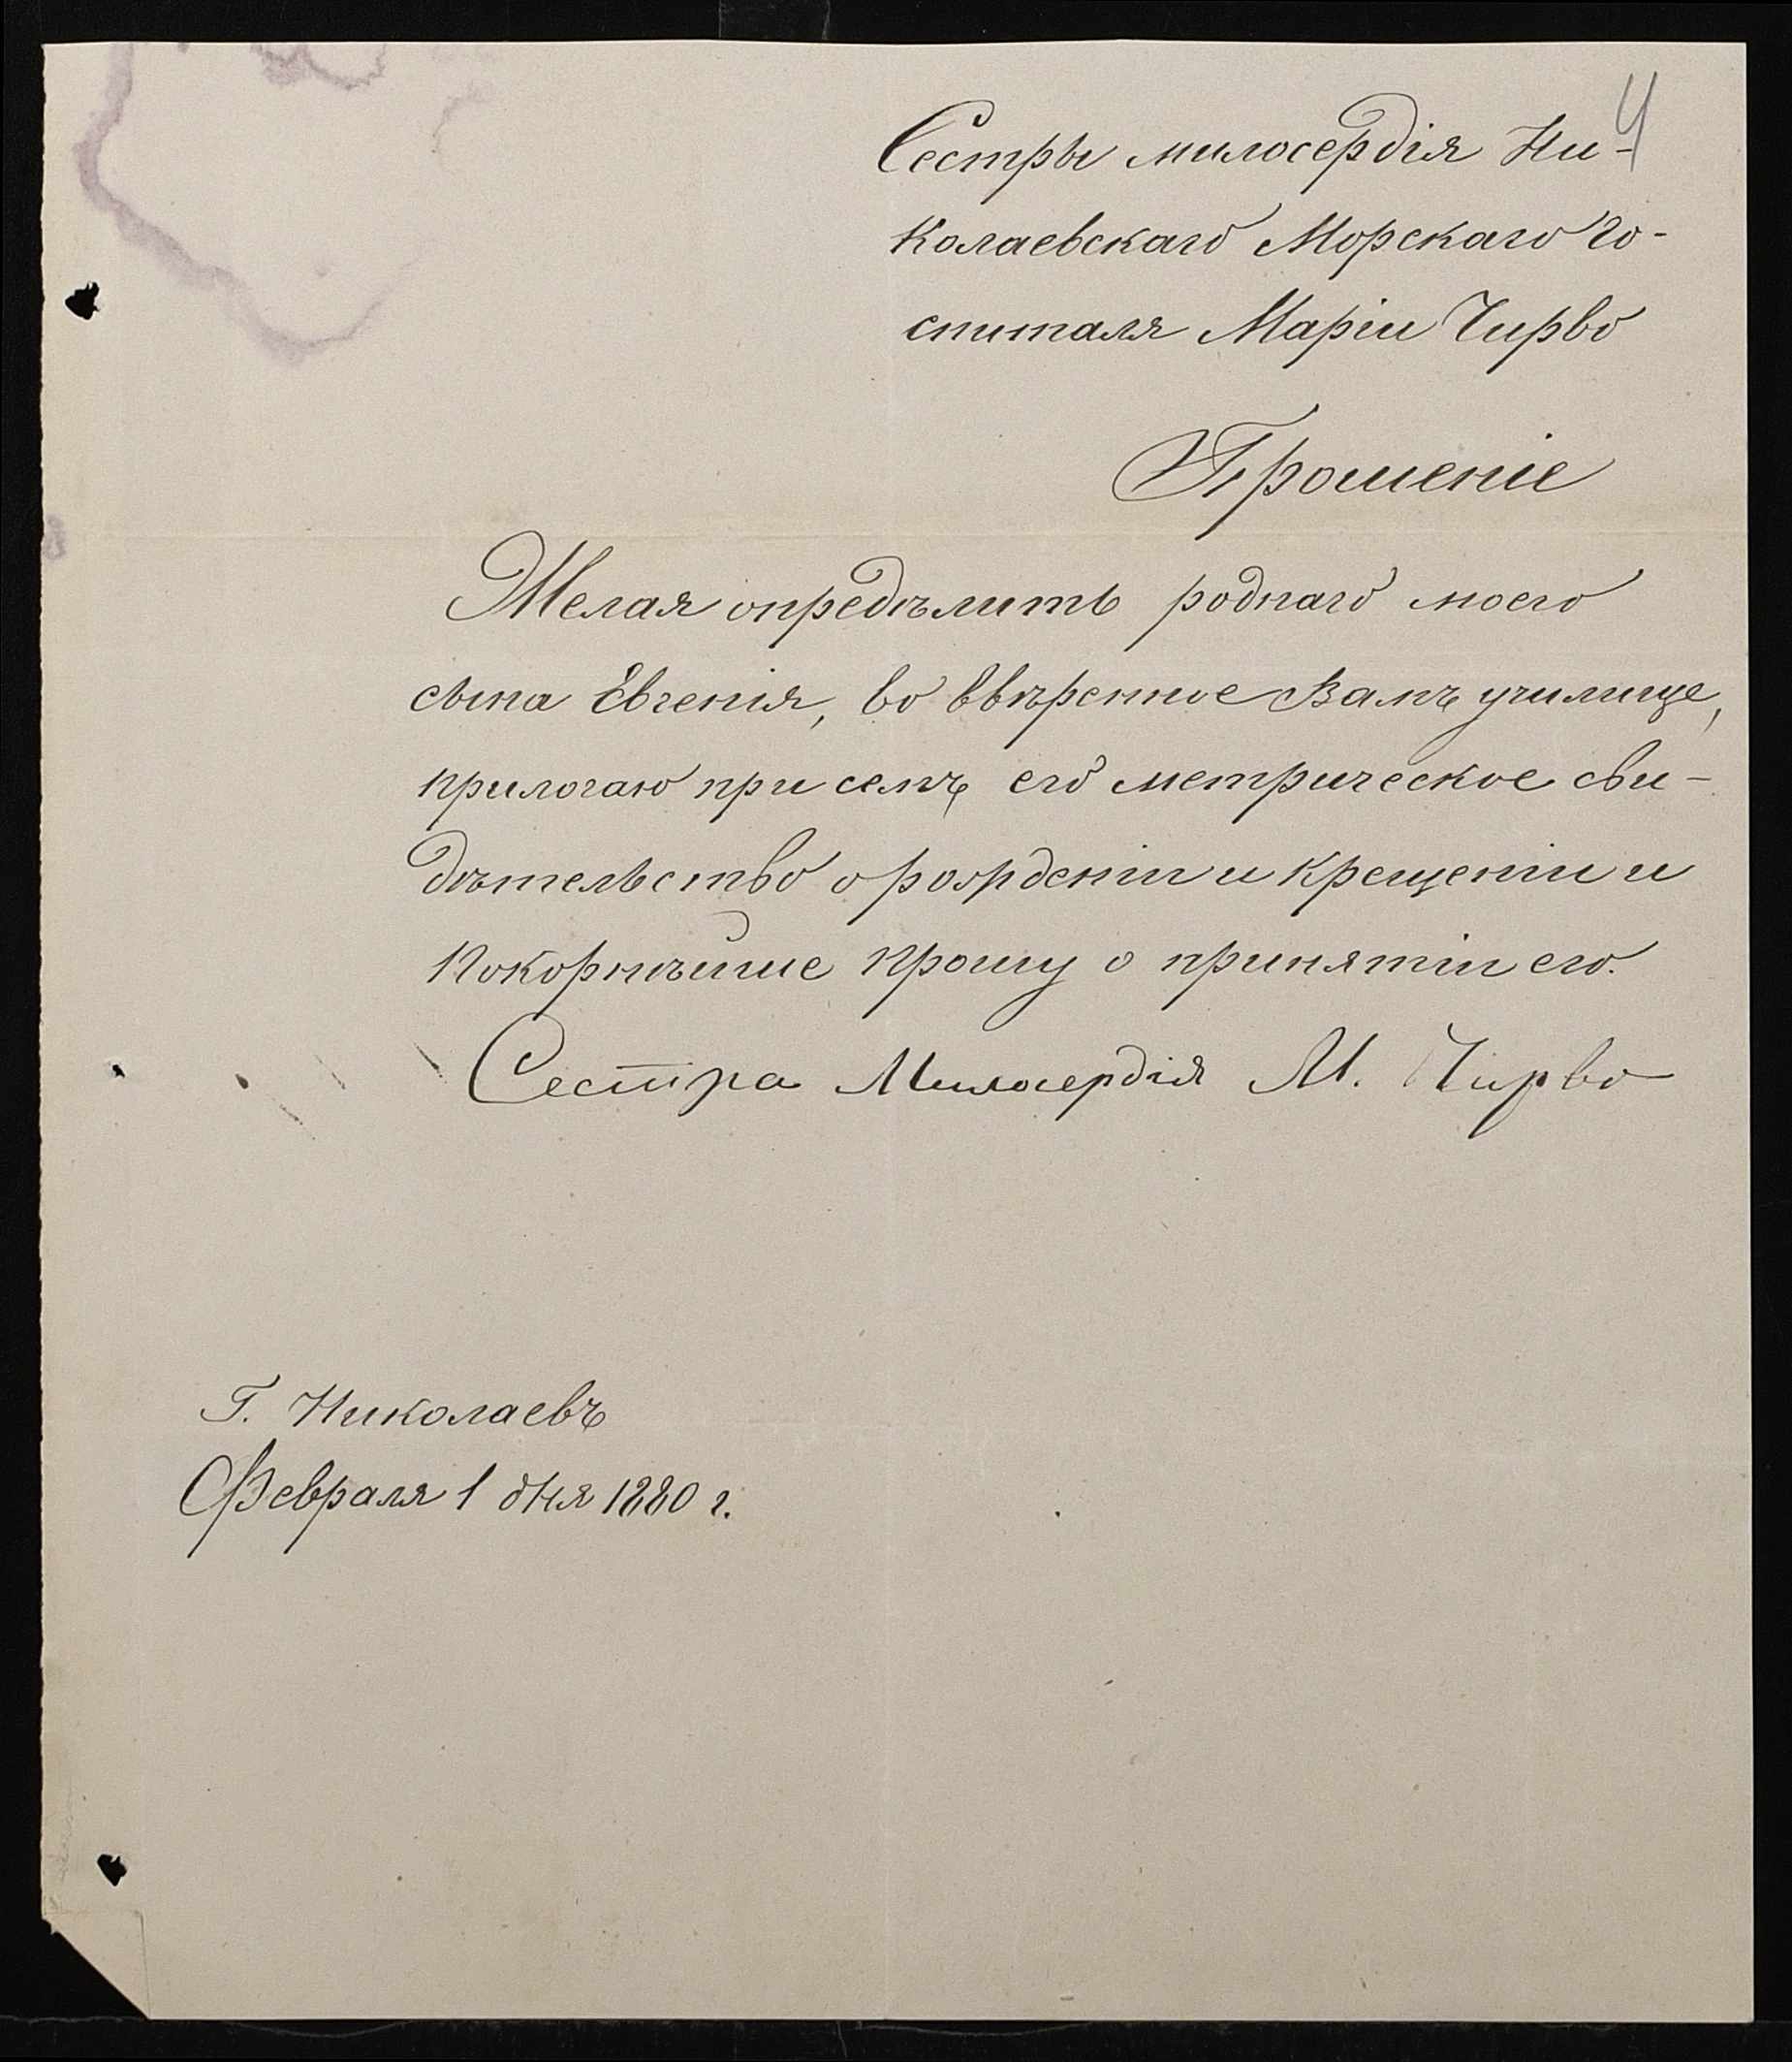 4
Сестры милосердія Ни-
колаевскаго Морскаго го-
спиталя Маріи Чирво
Прошеніе
Желая опредѣлить роднаго моего
сына Евгенія, во ввѣренное Вамъ училище,
прилагаю при семъ его метрическое сви-
дѣтельство о рожденіи и крещеніи и
покорнѣйше прошу о принятіи его.
Сестра Милосердія М. Чирво
Г. Николаевъ
Февраля 1 дня 1880 г.